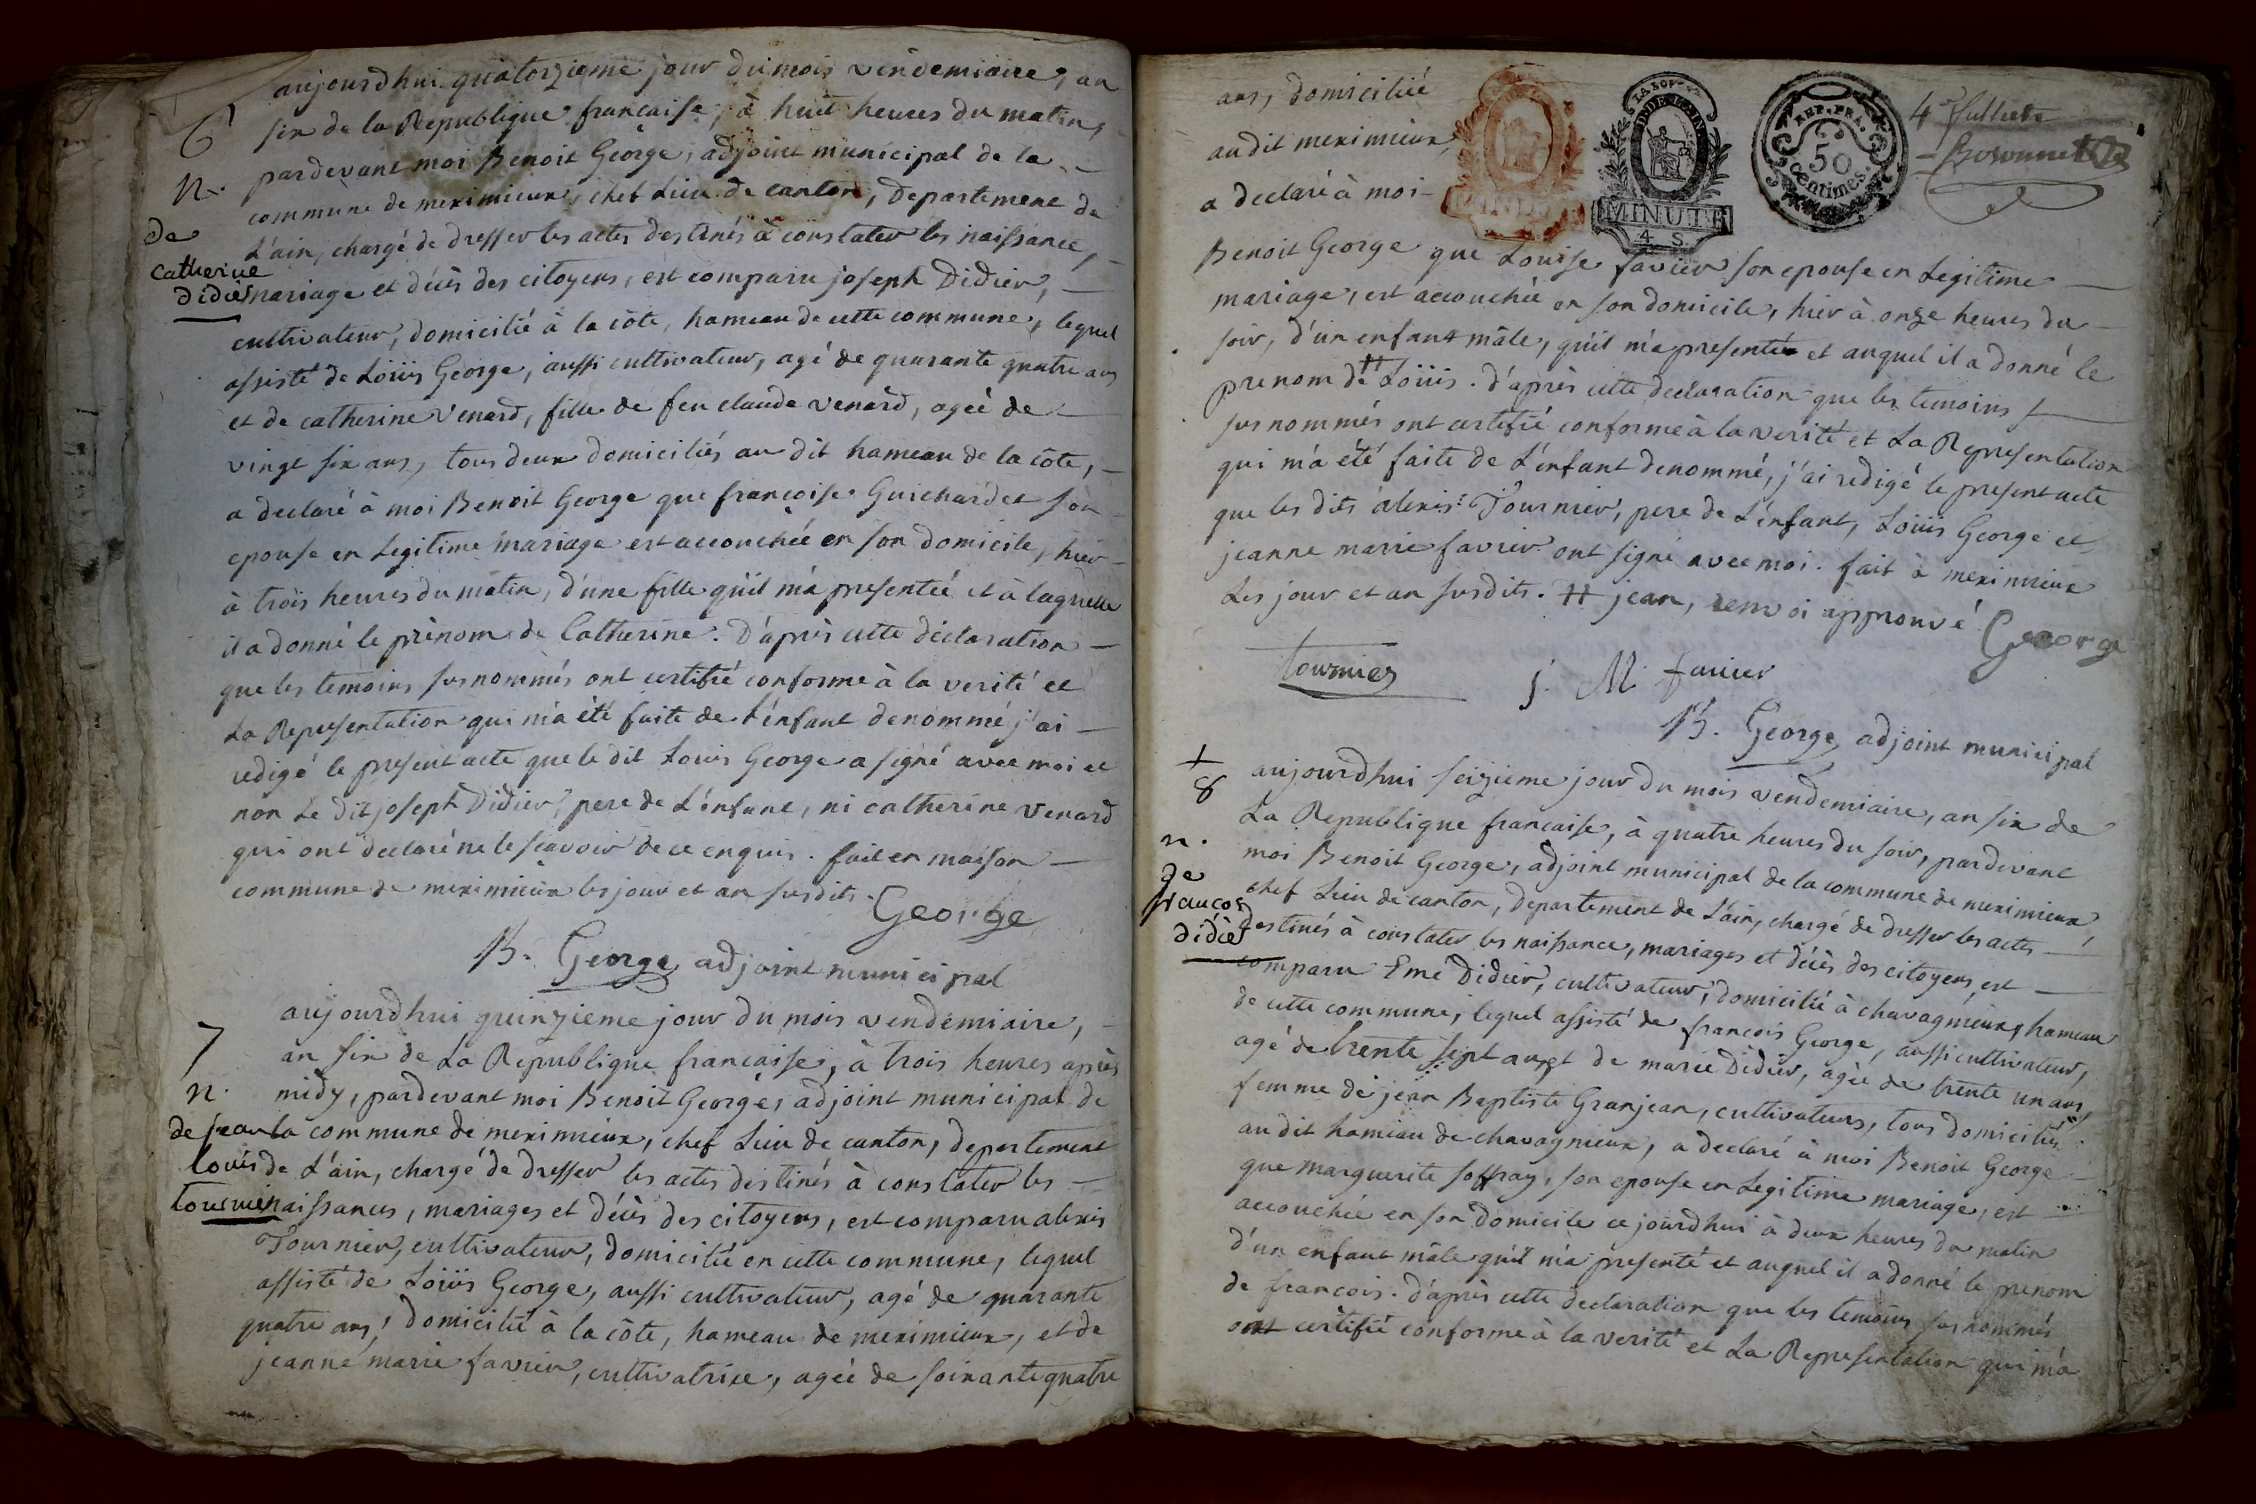 aujourdhui quatorzieme jour du mois vendemiaire, an
6
six de la Republique francaise, à huit heures du matin,
pardevant moi Benoit George, adjoint municipal de la
n.
commune de meximieux, chef Lieu de canton, Departement de
de
L'ain, chargé de dresser les actes destinés à constater les naissance,
catherine
didier
mariage et décès des citoyens, est comparu joseph Didier,
cultivateur, domicilié à la côte, hameau de cette commune, lequel
assisté de Loüis George, aussi cultivateur, agé de quarante quatre ans
et de catherine Venard, fille de feu claude Venard, ageé de
vingt six ans, tous deux domiciliés au dit hameau de la côte,
a declaré à moi Benoit George que françoise Guichardet son
epouse en Legitime mariage est accouchée en son domicile, hier
à trois heures du matin, d'une fille qu'il m'a presenteé et à laquelle
il a donné le prénom de Catherine. D'après cette déclaration
que les temoins susnommés ont certifié conforme à la verité et
La Representation qui m'a été faite de L'enfant denommé j'ai
redigé le present acte que le dit Louis George a signé avec moi et
non Le Dit joseph Didier, pere de L'enfant, ni catherine Venard
qui ont declaré ne le scavoir de ce enquis. fait en maison
commune de meximieux les jour et an susdits.
George
B. George, adjoint municipal
aujourdhui quinzieme jour du mois vendemiaire,
7
an six de La Republique francaise, à trois heures après
n.
midy, pardevant moi Benoit George, adjoint municipal de
de jean
la commune de meximieux, chef Lieu de canton, departement
louis
de L'ain, chargé de dresser les actes destinés à constater les
tournier
naissances, mariages et décès des citoyens, est comparu alexis
Tournier, cultivateur, domicilié en cette commune, lequel
assisté de Loüis George, aussi cultivateur, agé de quarante
quatre ans, domicilié à la côte, hameau de meximieux, et de
jeanne marie favier, cultivatrice, ageé de soixante quatre
ans, domiciliée
audit meximieux,
a declaré à moi
MINUTE
4 S.
REP. FRA.
50
Centimes.
4
Benoit George que Louise favier son epouse en Legitime
mariage, est accouchée en son domicile, hier à onze heures du
soir, d'un enfant mâle, qu'il m'a presenté et auquel il a donné le
prenom de # Loüis. d'après cette declaration que les temoins
susnommés ont certifié conforme à la verité et La Representation
qui m'a été faite de L'enfant denommé, j'ai redigé le present acte
que les dits alexis Tournier, pere de L'enfant, Loüis George et
jeanne marie favier ont signé avec moi. fait à meximieux
Les jour et an susdits. # jean, renvoi approuvé
George
tournier
j. M. favier
B. George, adjoint municipal
8
aujourdhui seizieme jour du mois vendemiaire, an six de
La Republique francaise, à quatre heures du soir, pardevant
n.
moi Benoit George, adjoint municipal de la commune de meximieux
de
chef Lieu de canton, departement de L'ain, chargé de dresser les actes
francois
didier
destinés à constater les naissance, mariages et décès des citoyens, est
comparu Emé Didier, cultivateur, domicilié à chavagnieux, hameau
de cette commune, lequel assisté de francois George, aussi cultivateur,
agé de trente sept ans et de marie Didier, agée de trente un ans,
femme de jean Baptiste Granjean, cultivateurs, tous domiciliés
au dit hameau de chavagnieux, a declaré à moi Benoit George
que marguerite soffray, son epouse en Legitime mariage, est
accouchée en son domicile ce jourdhui à deux heures du matin
d'un enfant mâle qu'il m'a presenté et auquel il a donné le prenom
de francois. d'après cette declaration que les temoins susnommés
ont certifié conforme à la verité et La Representation qui m'a